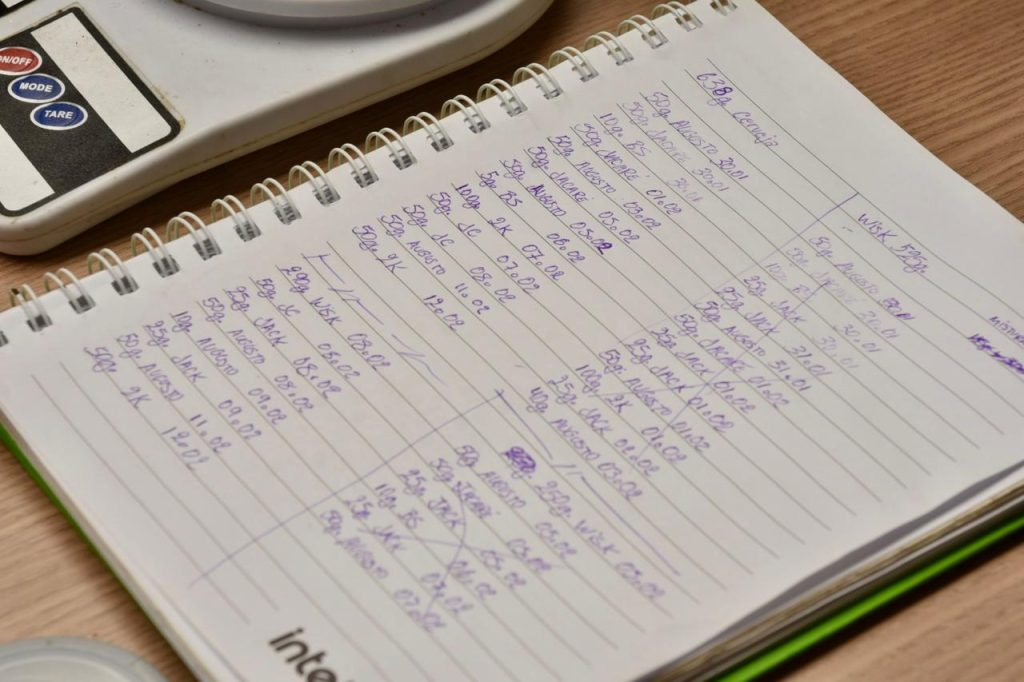 ON/OFF
MODE
TARE
638g. Cerveja
50g. AUGUSTO 30.01
50g. JACARÉ 30.01
10g. BS
50g. JACARÉ 01.02
50g. AUGUSTO 03.02
50g. JACARÉ 05.02
50g. AUGUSTO 06.02
5g. BS 07.02
100g 2K 07.02
50g. JC 08.02
50g. AUGUSTO 11.02
50g. 2K 12.02
WISK 525g.
50g. AUGUSTO
50g. JACARÉ 30.01
10g. B 30.01
25g. JACK 31.01
50g. AUGUSTO 31.01
50g. JACARÉ 01.02
25g. JACK 01.02
50g. AUGUSTO 01.02
100g 2K
25g. JACK 02.02
40g. AUGUSTO 03.02
290g. WISK 08.02
50g. JC 08.02
25g. JACK 08.02
50g. AUGUSTO 08.02
10g. AUGUSTO 09.02
25g. JACK 09.02
50g. AUGUSTO 11.02
50g. 2K 12.02
250g. WISK 03.02
50g. AUGUSTO 05.02
50g. JACARÉ 05.02
25g. JACK 05.02
10g. BS
25g. JACK 07.02
50g. AUGUSTO 07.02